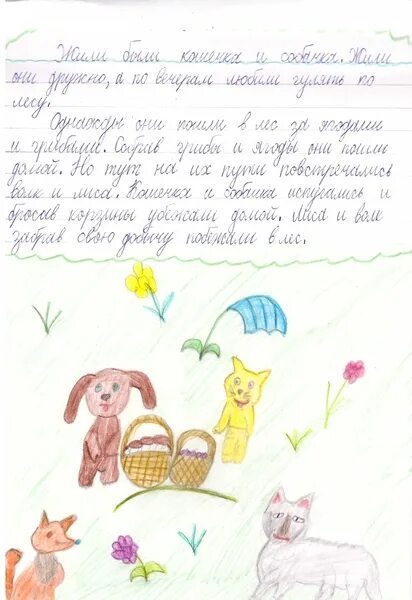 Жили были кошечка и собачка. Жили
они дружно, а по вечерам любили гулять по
лесу.
Однажды они пошли в лес за ягодами
и грибами. Собрав грибы и ягоды они пошли
домой. Но тут на их пути повстречались
волк и лиса. Кошечка и собачка испугались и
бросив корзины убежали домой. Лиса и волк
забрав свою добычу побежали в лес.